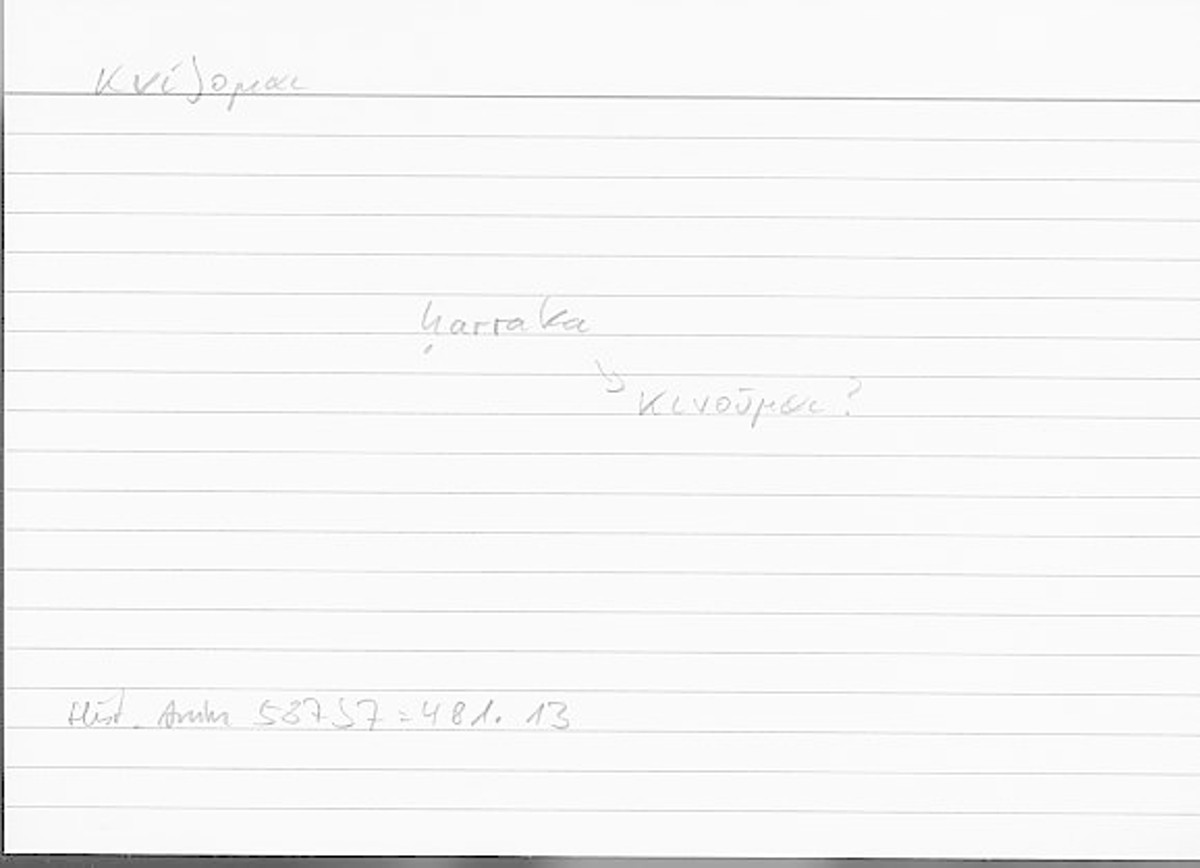 κνίζομαι
ḥarraka
↳ κινοῦμαι?
Hist. Anim 587b7 = 481. 13